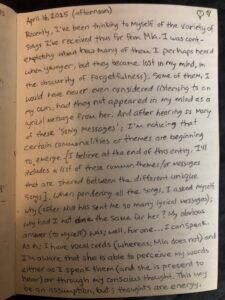 April 16, 2025 (afternoon)
Recently, I've been thinking to myself of the variety of
songs I've received thus far from Mia. I was cont-
emplating about how many of them I perhaps heard
when younger, but they became lost in my mind, in
the obscurity of forgetfulness). Some of them, I
would have never even considered listening to on
my own, had they not appeared in my mind as a
lyrical message from her. And after hearing so many
of these 'Song Messages'; I'm noticing that
certain commonalities or themes are beginning
to emerge. [I believe at the end of this entry, I'll
include a list of these common themes/or messages
that are shared between the different unique
songs]. When pondering all the songs, I asked myself
why (after Mia has sent me so many lyrical messages);
why had I not done the same for her? My obvious
answer (to myself) was; well, for one... I can speak.
As in; I have vocal cords (whereas; Mia does not) and
I'm aware that she is able to perceive my words
either as I speak them (and she is present to
hear) or through my conscious thought. This may
be an assumption, but; thoughts are energy,